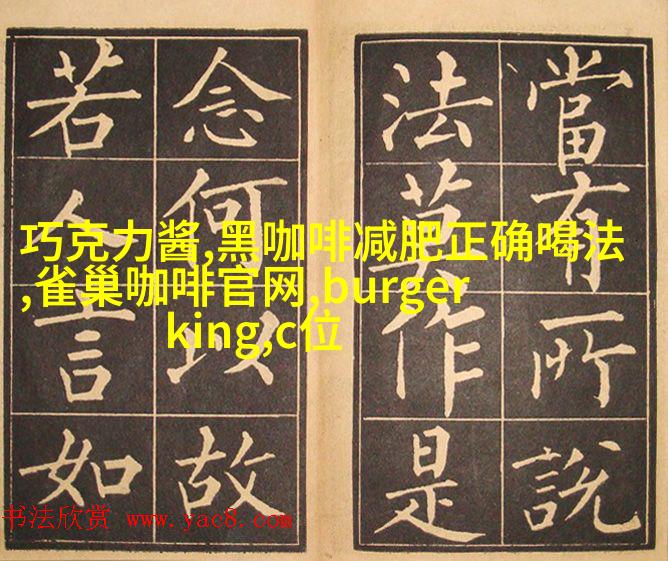 當有所說
法莫作是
念何以故
若人言如
巧克力酱,黑咖啡减肥正确喝法
,雀巢咖啡官网,burger
king,c位
书法欣赏 www.yac8.com